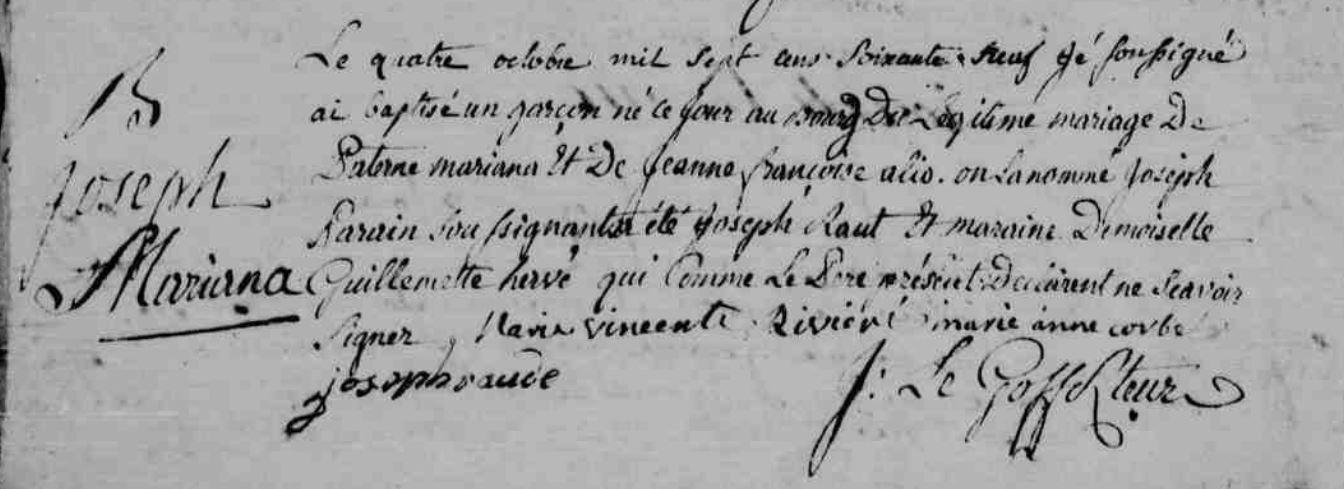 B
Joseph
Mariana
Le quatre octobre mil sept cens soixante neuf Jé soussigné
ai baptisé un garçon né ce jour au bourg Du Légitime mariage De
Paterne mariana Et De Jeanne françoise alio. on la nommé Joseph
Parain soussignant a été Joseph Raut Et maraine Demoiselle
Guillemette hervé qui Comme Le Pere présent Déclarent ne sçavoir
signer, Marie vincente Riviere marie anne corbe
joseph
J: Le Goff Rteur